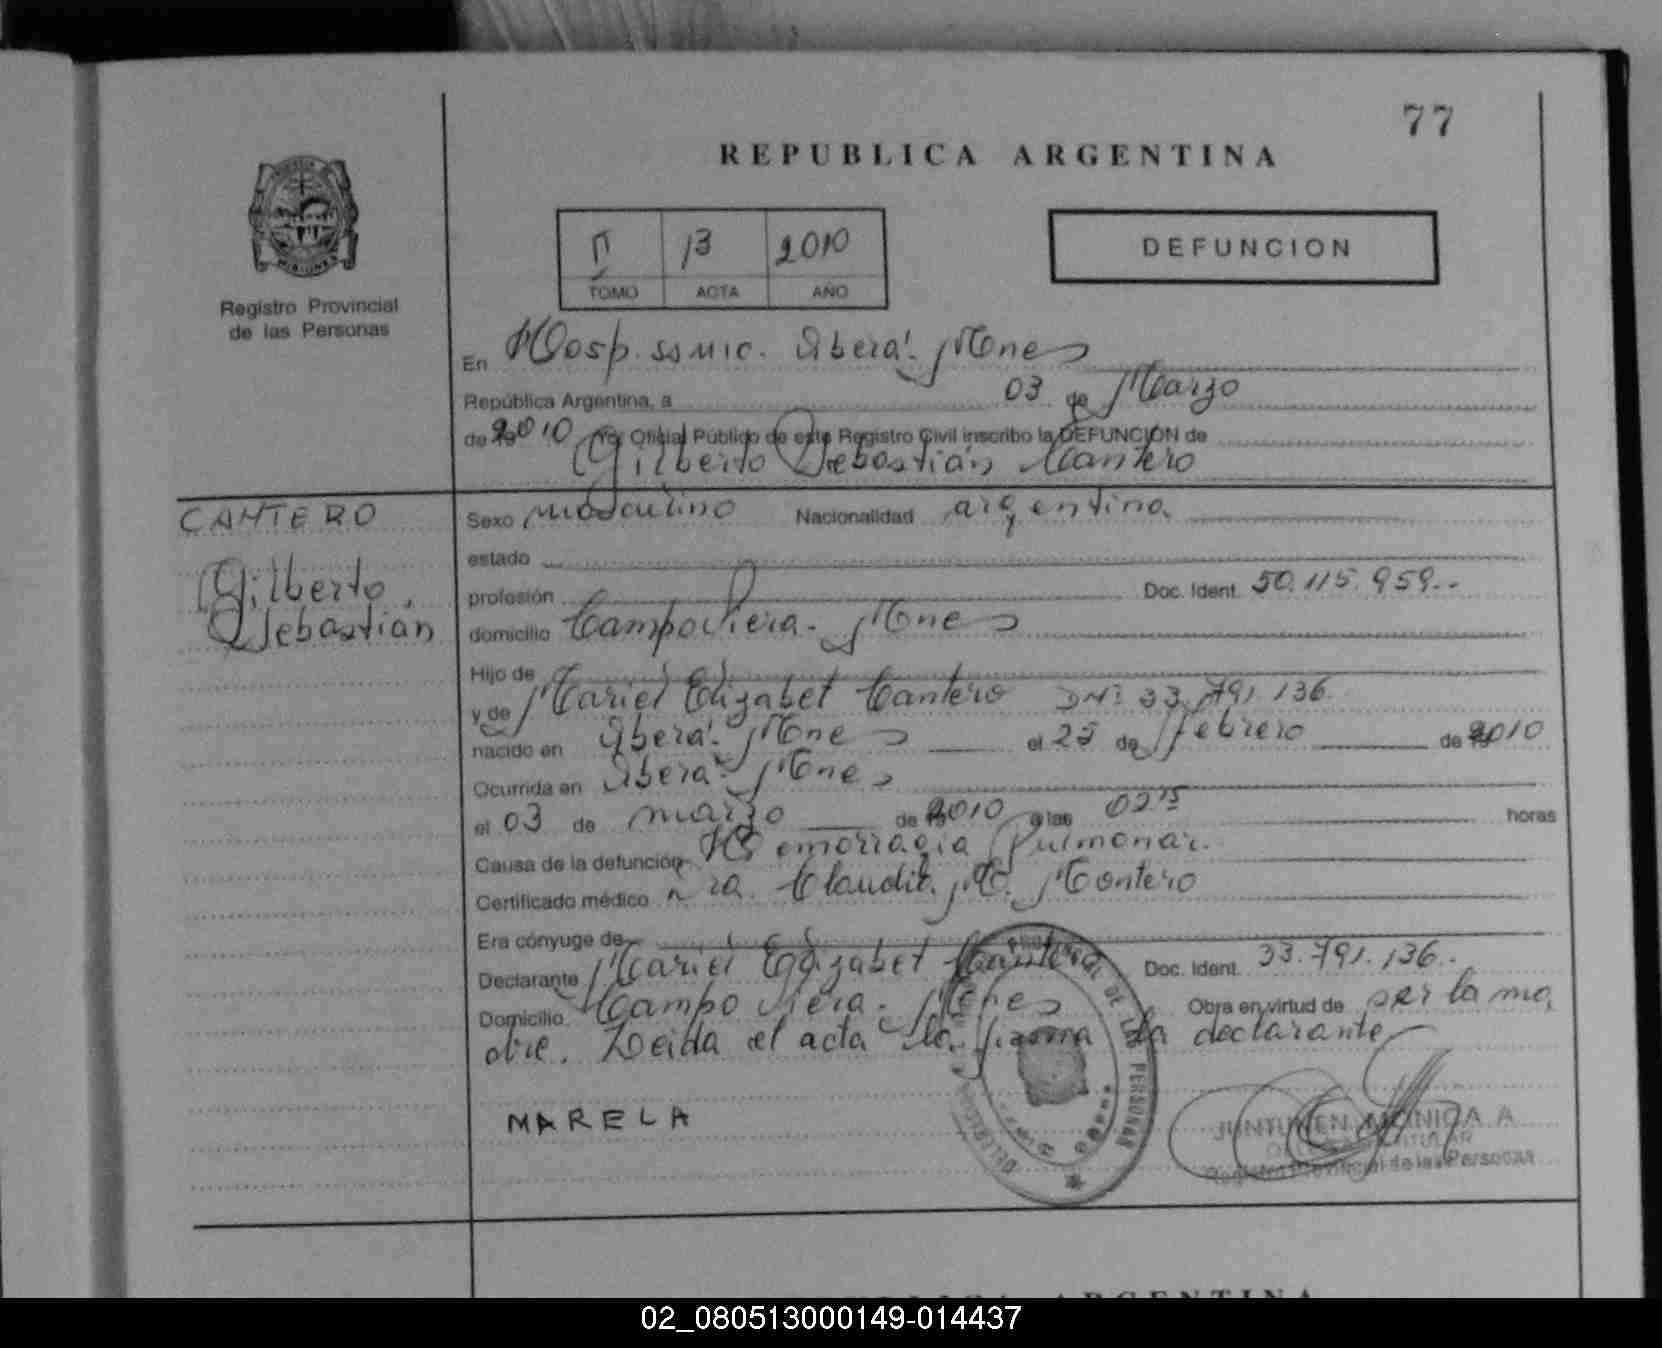 77
REPUBLICA ARGENTINA
MISIONES
Registro Provincial
de las Personas
II 13 2010
TOMO ACTA AÑO
DEFUNCION
En Hosp. ssmic. Oberá. Mnes
República Argentina, a 03 de Marzo
de 2010 Yo, Oficial Público de este Registro Civil inscribo la DEFUNCION de
Gilberto Sebastián Cantero
CANTERO
Gilberto
Sebastián
Sexo masculino Nacionalidad argentina
estado
profesión Doc. Ident. 50.115.959..
domicilio Campo Viera. Mnes
Hijo de
y de Mariel Elizabet Cantero DNI 33.791.136
nacido en Oberá. Mnes el 25 de febrero de 2010
Ocurrida en Oberá. Mnes
el 03 de marzo de 2010 a las 02 15 horas
Causa de la defunción Hemorragia Pulmonar.
Certificado médico Dra. Claudia M. Montero
Era cónyuge de
Declarante Mariel Elizabet Cantero Doc. Ident. 33.791.136.
Domicilio Campo Viera. Mnes Obra en virtud de ser la ma,
dre. Leida el acta la firma la declarante
MARELA
JUNTUNEN MONICA A
TITULAR
Registro Provincial de las Personas
REPUBLICA ARGENTINA
02_080513000149-014437